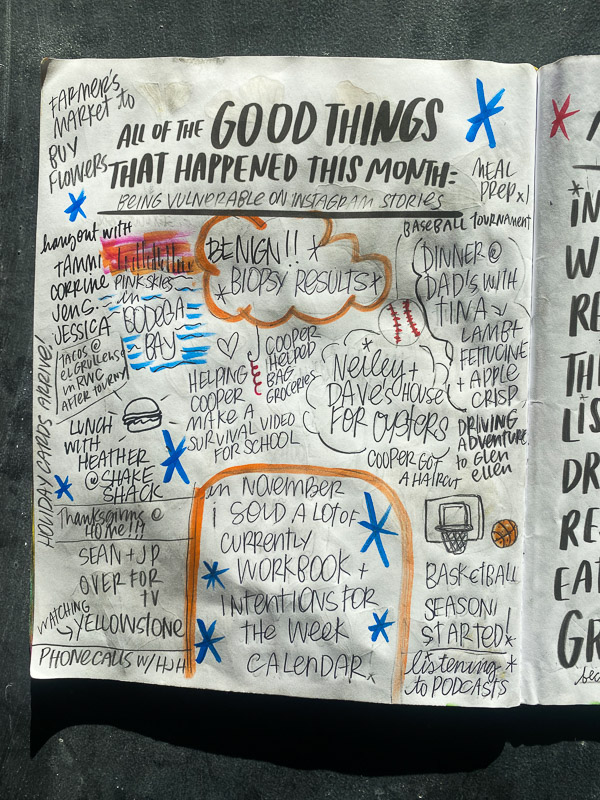 FARMER'S
MARKET to
BUY
FLOWERS
ALL OF THE GOOD THINGS
THAT HAPPENED THIS MONTH:
BEING VULNERABLE ON INSTAGRAM STORIES
MEAL
PREP x1
hangout WITH
TAMMI
CORRINE
JEN G.
JESSICA
PINK SKIES
in
BODEGA
BAY
BENIGN!!
BIOPSY RESULTS
BASEBALL TOURNAMENT
DINNER @
DAD'S WITH
TINA
LAMB +
FETTUCINE
+ APPLE
CRISP
TACOS @
el GRULLENSE
in RWC
AFTER TOURNY
HELPING
COOPER
MAKE A
SURVIVAL VIDEO
FOR SCHOOL
COOPER
HELPED
BAG
GROCERIES
Neiley +
DAVE'S HOUSE
FOR OYSTERS
DRIVING
ADVENTURE
to GLEN
ellen
COOPER GOT
A HAIRCUT
HOLIDAY CARDS ARRIVE!
LUNCH
WITH
HEATHER
@ SHAKE
SHACK
Thanksgiving @
HOME!!!
SEAN + JP
OVER FOR
TV
WATCHING
YELLOWSTONE
PHONE CALLS W/ HJH
in NOVEMBER
i SOLD A LOT OF
CURRENTLY
WORKBOOK +
INTENTIONS FOR
the WEEK
CALENDAR!
BASKETBALL
SEASON
STARTED!
listening
to PODCASTS
iN
W
RE
THI
LIS
DR
RE
EAT
GR
bec